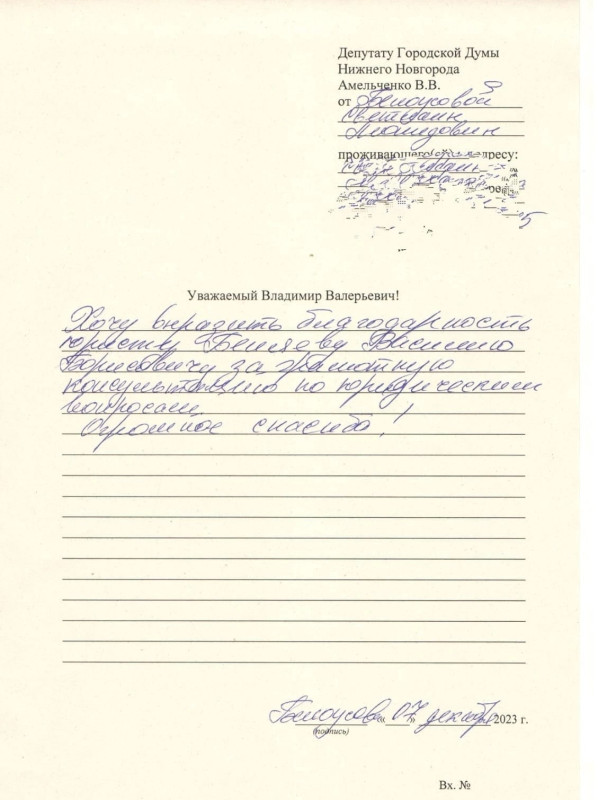 Депутату Городской Думы
Нижнего Новгорода
Амельченко В.В.
от Белоусовой
Светланы
Леонидовны
проживающего адресу:
Уважаемый Владимир Валерьевич!
Хочу выразить благодарность
юристу Беляеву Василию
Борисовичу за грамотную
консультацию по юридическим
вопросам
Огромное спасибо!
Белоусова «07» декабря 2023 г.
(подпись)
Вх. №